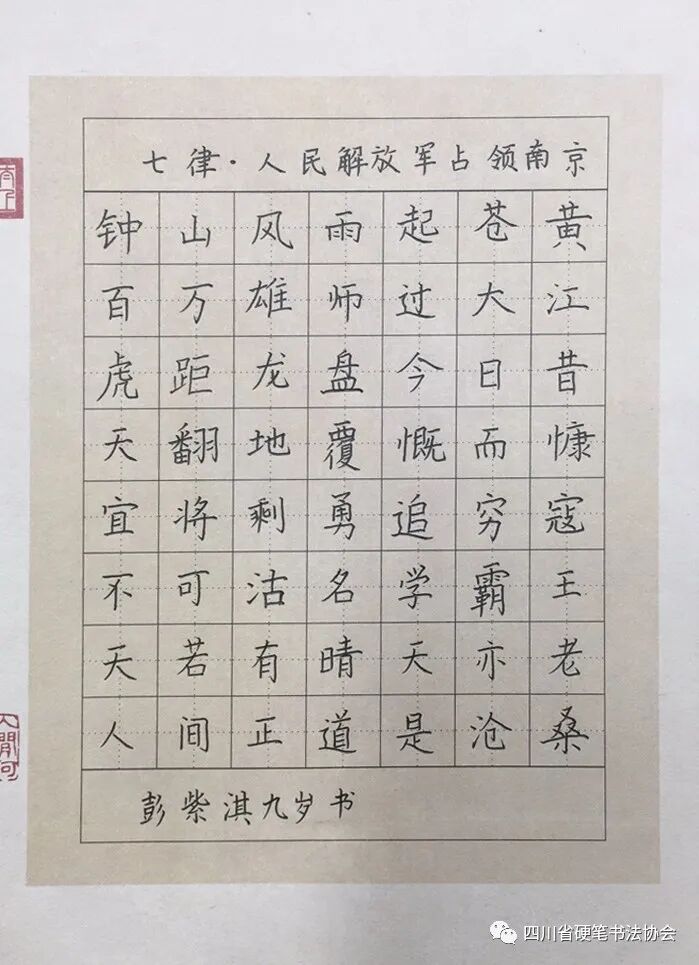 七律·人民解放军占领南京
钟山风雨起苍黄
百万雄师过大江
虎距龙盘今日昔
天翻地覆慨而慷
宜将剩勇追穷寇
不可沽名学霸王
天若有晴天亦老
人间正道是沧桑
彭紫淇九岁书
四川省硬笔书法协会